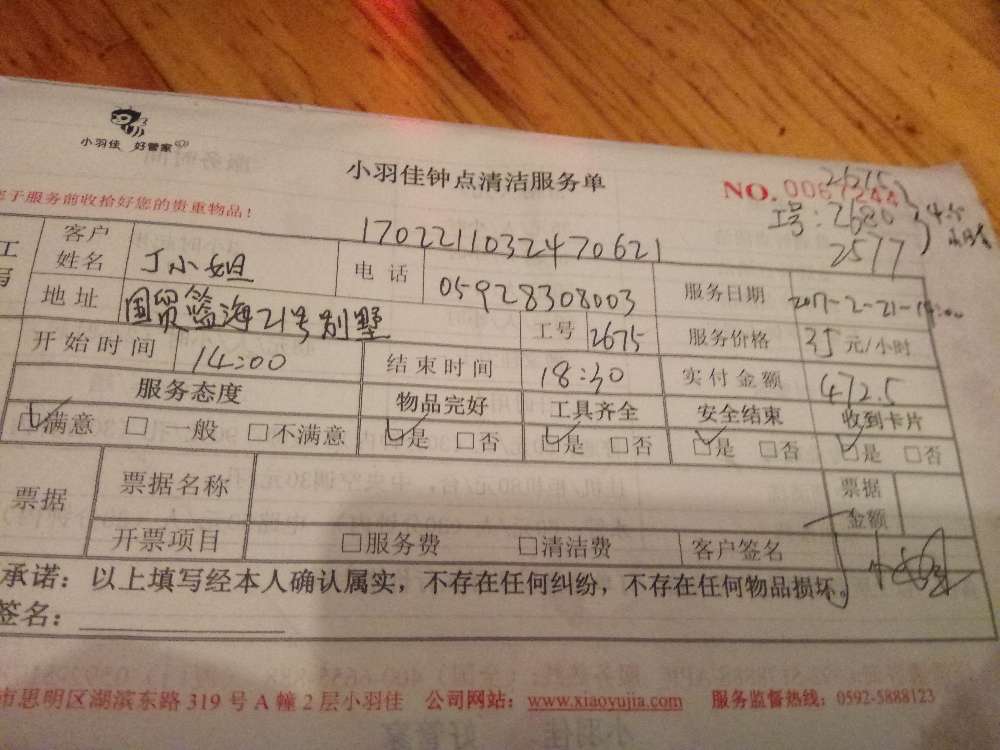 小羽佳 好管家
小羽佳钟点清洁服务单
NO.
于服务前收拾好您的贵重物品!
工号:2680
2577
客户姓名 丁小姐 电话 1702211032470621
05928308003 服务日期 2017-2-21-14:00
地址 国贸蓝海21号别墅 工号 2675 服务价格 35元/小时
开始时间 14:00 结束时间 18:30 实付金额 472.5
服务态度 物品完好 工具齐全 安全结束 收到卡片
☑满意 □一般 □不满意 ☑是 □否 ☑是 □否 ☑是 □否 ☑是 □否
票据 票据名称 票据金额
开票项目 □服务费 □清洁费 客户签名
承诺:以上填写经本人确认属实,不存在任何纠纷,不存在任何物品损坏。
签名:
市思明区湖滨东路319号A幢2层小羽佳 公司网站:www.xiaoyujia.com 服务监督热线:0592-5888123